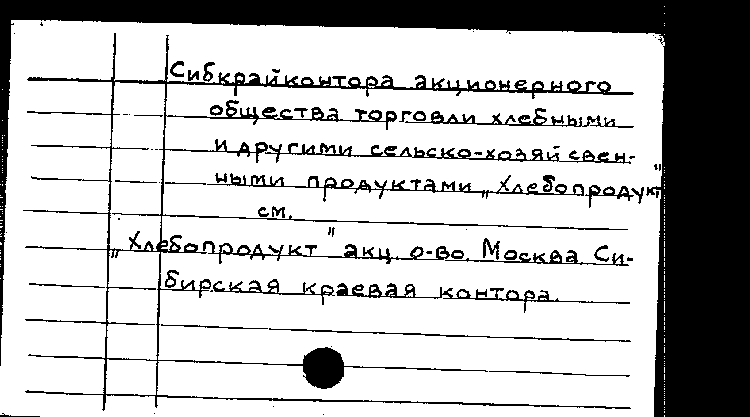 Сибкрайконтора акционерного
общества торговли хлебными
и другими сельско-хозяйсвен-
ными продуктами „Хлебопродукт"
см.
„Хлебопродукт" акц. о-во. Москва. Си-
бирская краевая контора.